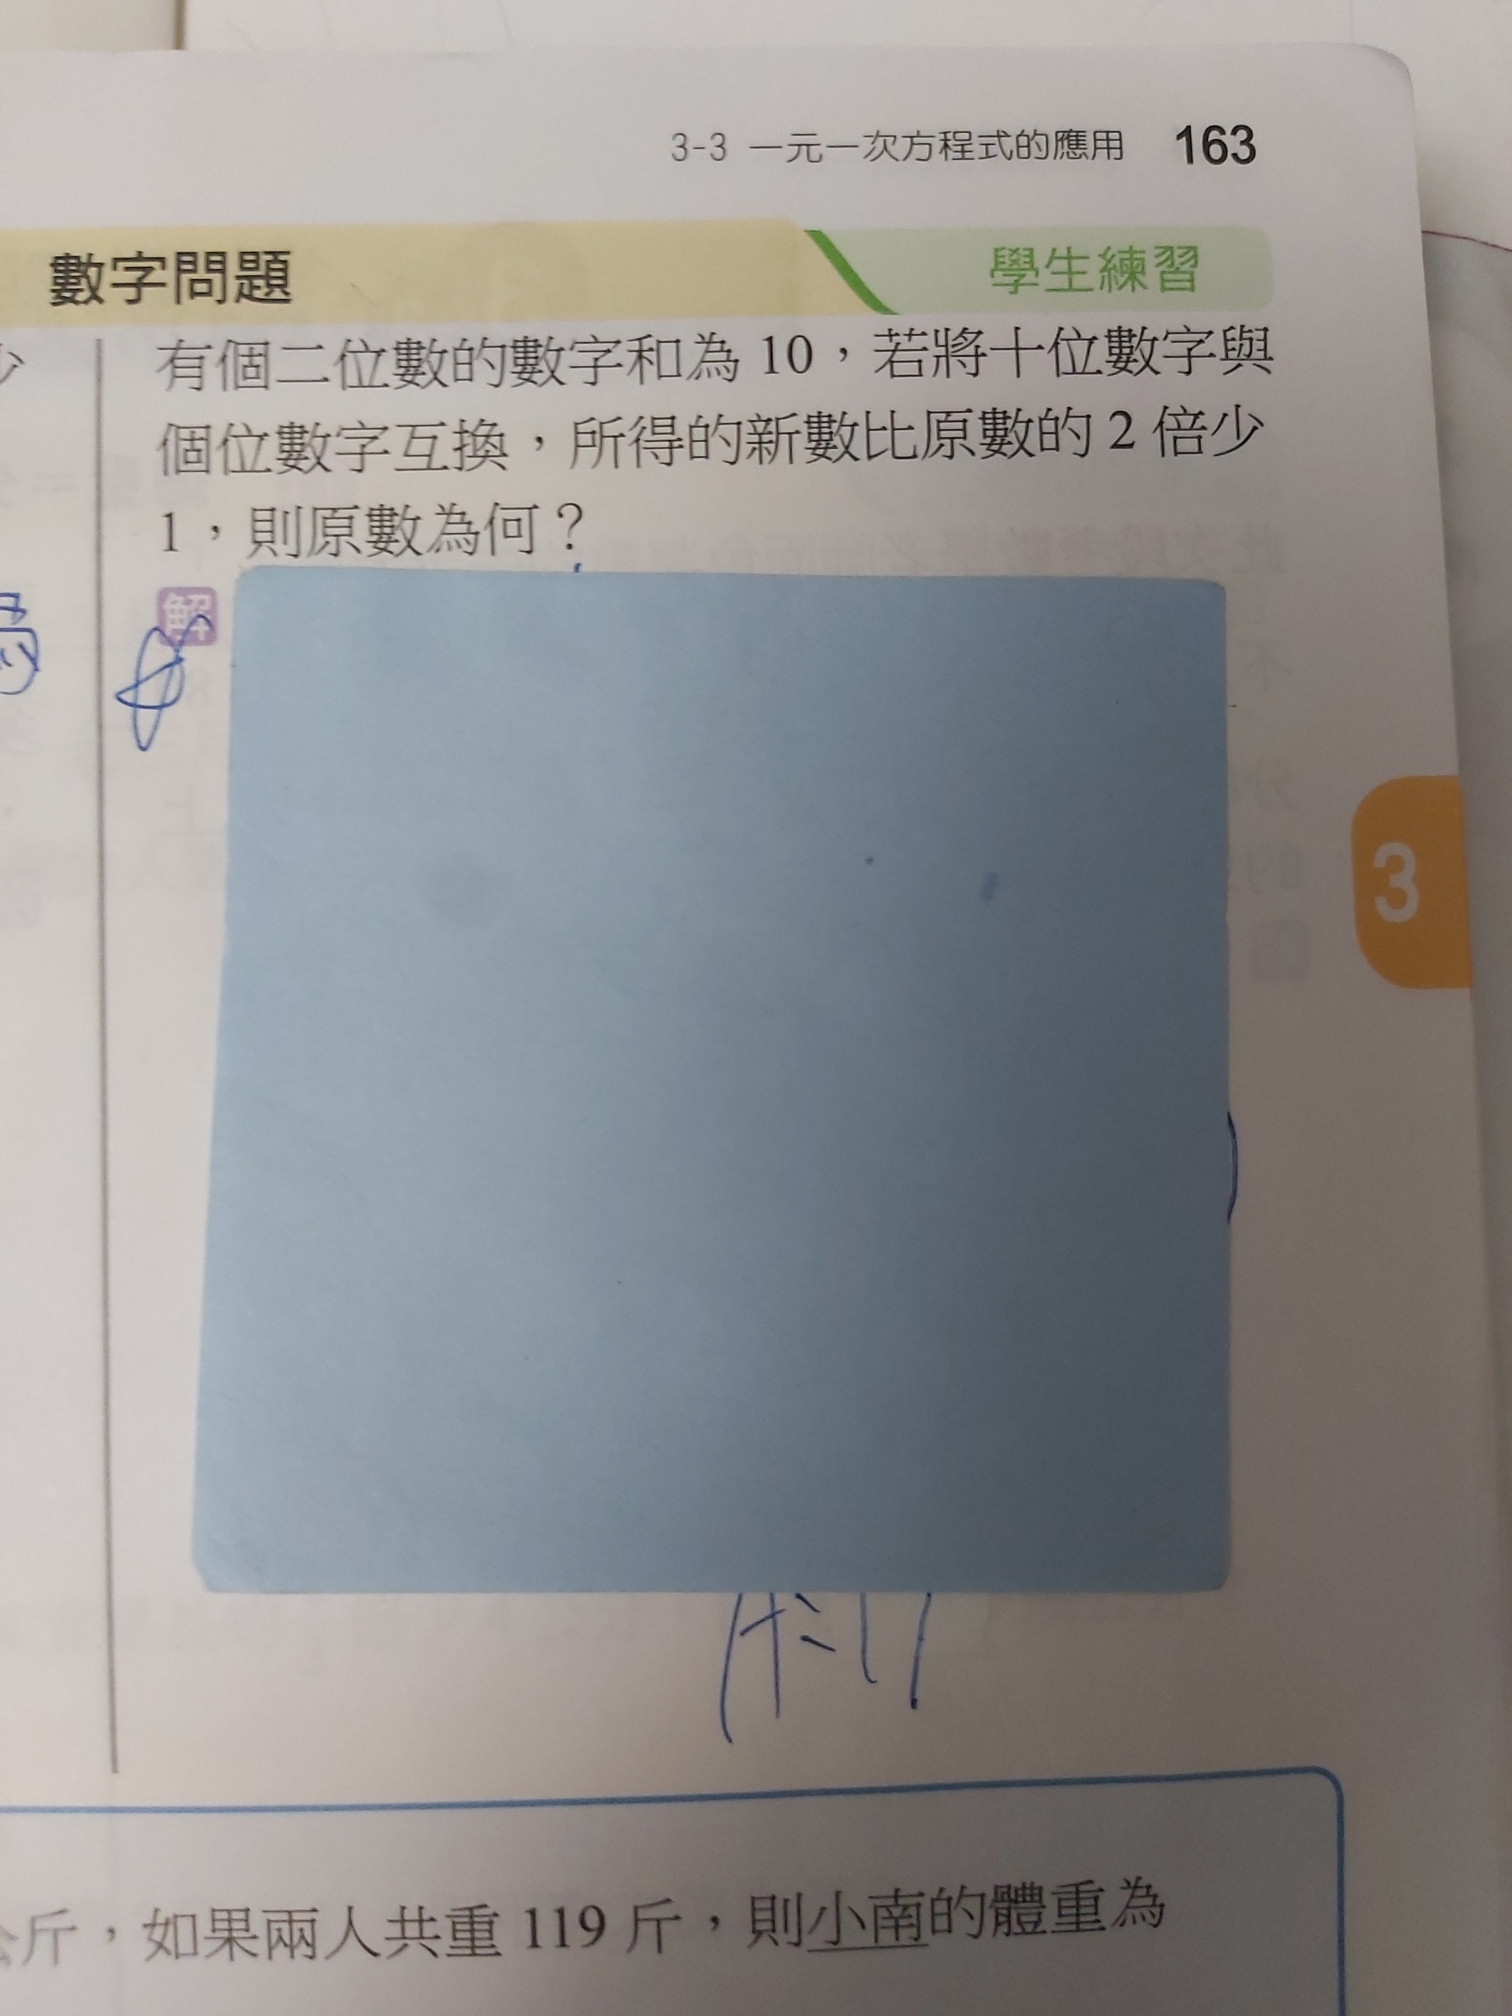 3-3 一元一次方程式的應用 163
數字問題 學生練習
少
有個二位數的數字和為 10，若將十位數字與
個位數字互換，所得的新數比原數的 2 倍少
1，則原數為何？
解
3
公斤，如果兩人共重 119 斤，則小南的體重為